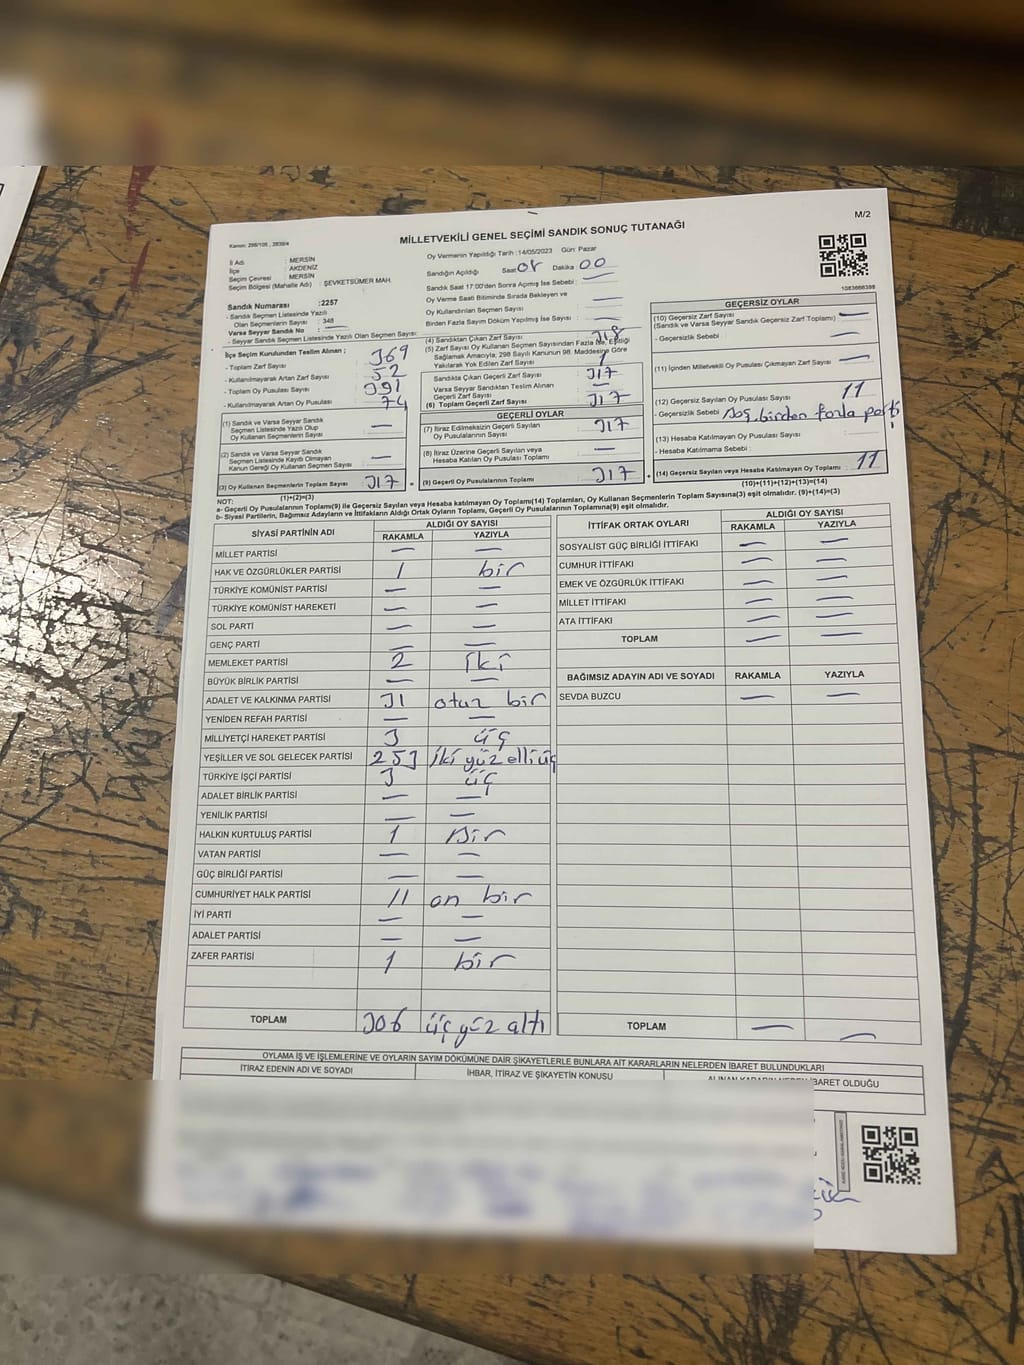 M/2
MİLLETVEKİLİ GENEL SEÇİMİ SANDIK SONUÇ TUTANAĞI
İl Adı : MERSİN
İlçe : AKDENİZ
Seçim Çevresi : MERSİN
Seçim Bölgesi (Mahalle Adı) : ŞEVKETSÜMER MAH.
Sandık Numarası : 2257
- Sandık Seçmen Listesinde Yazılı
Olan Seçmenlerin Sayısı : 348
Varsa Seyyar Sandık No :
- Seyyar Sandık Seçmen Listesinde Yazılı Olan Seçmen Sayısı:
İlçe Seçim Kurulundan Teslim Alınan ;
- Toplam Zarf Sayısı : 369
- Kullanılmayarak Artan Zarf Sayısı : 52
- Toplam Oy Pusulası Sayısı : 391
- Kullanılmayarak Artan Oy Pusulası : 74
(1) Sandık ve Varsa Seyyar Sandık
Seçmen Listesinde Yazılı Olup
Oy Kullanan Seçmenlerin Sayısı —
(2) Sandık ve Varsa Seyyar Sandık
Seçmen Listesinde Kayıtlı Olmayan
Kanun Gereği Oy Kullanan Seçmen Sayısı —
(3) Oy Kullanan Seçmenlerin Toplam Sayısı 317
(1)+(2)=(3)
Oy Vermenin Yapıldığı Tarih :14/05/2023 Gün: Pazar
Sandığın Açıldığı Saat 08 Dakika 00
Sandık Saat 17:00'den Sonra Açılmış İse Sebebi : —
Oy Verme Saati Bitiminde Sırada Bekleyen ve
Oy Kullandırılan Seçmen Sayısı —
Birden Fazla Sayım Döküm Yapılmış İse Sayısı : —
(4) Sandıktan Çıkan Zarf Sayısı : 318
(5) Zarf Sayısı Oy Kullanan Seçmen Sayısından Fazla İse, Eşitliği
Sağlamak Amacıyla, 298 Sayılı Kanunun 98. Maddesine Göre
Yakılarak Yok Edilen Zarf Sayısı 1
Sandıkta Çıkan Geçerli Zarf Sayısı 317
Varsa Seyyar Sandıktan Teslim Alınan
Geçerli Zarf Sayısı —
(6) Toplam Geçerli Zarf Sayısı 317
GEÇERLİ OYLAR
(7) İtiraz Edilmeksizin Geçerli Sayılan
Oy Pusulalarının Sayısı 317
(8) İtiraz Üzerine Geçerli Sayılan veya
Hesaba Katılan Oy Pusulası Toplamı —
(9) Geçerli Oy Pusulalarının Toplamı 317
1083666398
GEÇERSİZ OYLAR
(10) Geçersiz Zarf Sayısı
(Sandık ve Varsa Seyyar Sandık Geçersiz Zarf Toplamı) —
- Geçersizlik Sebebi —
(11) İçinden Milletvekili Oy Pusulası Çıkmayan Zarf Sayısı —
(12) Geçersiz Sayılan Oy Pusulası Sayısı 11
- Geçersizlik Sebebi Boş, birden fazla parti
(13) Hesaba Katılmayan Oy Pusulası Sayısı
- Hesaba Katılmama Sebebi :
(14) Geçersiz Sayılan veya Hesaba Katılmayan Oy Toplamı 11
(10)+(11)+(12)+(13)=(14)
NOT:
a- Geçerli Oy Pusulalarının Toplamı(9) ile Geçersiz Sayılan veya Hesaba katılmayan Oy Toplamı(14) Toplamları, Oy Kullanan Seçmenlerin Toplam Sayısına(3) eşit olmalıdır. (9)+(14)=(3)
b- Siyasi Partilerin, Bağımsız Adayların ve İttifakların Aldığı Ortak Oyların Toplamı, Geçerli Oy Pusulalarının Toplamına(9) eşit olmalıdır.
SİYASİ PARTİNİN ADI ALDIĞI OY SAYISI
RAKAMLA YAZIYLA
MİLLET PARTİSİ — —
HAK VE ÖZGÜRLÜKLER PARTİSİ 1 bir
TÜRKİYE KOMÜNİST PARTİSİ — —
TÜRKİYE KOMÜNİST HAREKETİ — —
SOL PARTİ — —
GENÇ PARTİ — —
MEMLEKET PARTİSİ 2 iki
BÜYÜK BİRLİK PARTİSİ — —
ADALET VE KALKINMA PARTİSİ 31 otuz bir
YENİDEN REFAH PARTİSİ — —
MİLLİYETÇİ HAREKET PARTİSİ 3 üç
YEŞİLLER VE SOL GELECEK PARTİSİ 253 iki yüz elli üç
TÜRKİYE İŞÇİ PARTİSİ 3 üç
ADALET BİRLİK PARTİSİ — —
YENİLİK PARTİSİ — —
HALKIN KURTULUŞ PARTİSİ 1 Bir
VATAN PARTİSİ — —
GÜÇ BİRLİĞİ PARTİSİ — —
CUMHURİYET HALK PARTİSİ 11 on bir
İYİ PARTİ — —
ADALET PARTİSİ — —
ZAFER PARTİSİ 1 bir
TOPLAM 306 üç yüz altı
İTTİFAK ORTAK OYLARI ALDIĞI OY SAYISI
RAKAMLA YAZIYLA
SOSYALİST GÜÇ BİRLİĞİ İTTİFAKI — —
CUMHUR İTTİFAKI — —
EMEK VE ÖZGÜRLÜK İTTİFAKI — —
MİLLET İTTİFAKI — —
ATA İTTİFAKI — —
TOPLAM — —
BAĞIMSIZ ADAYIN ADI VE SOYADI RAKAMLA YAZIYLA
SEVDA BUZCU — —
TOPLAM — —
OYLAMA İŞ VE İŞLEMLERİNE VE OYLARIN SAYIM DÖKÜMÜNE DAİR ŞİKAYETLERLE BUNLARA AİT KARARLARIN NELERDEN İBARET BULUNDUKLARI
İTİRAZ EDENİN ADI VE SOYADI İHBAR, İTİRAZ VE ŞİKAYETİN KONUSU ALINAN KARARIN NEDEN İBARET OLDUĞU